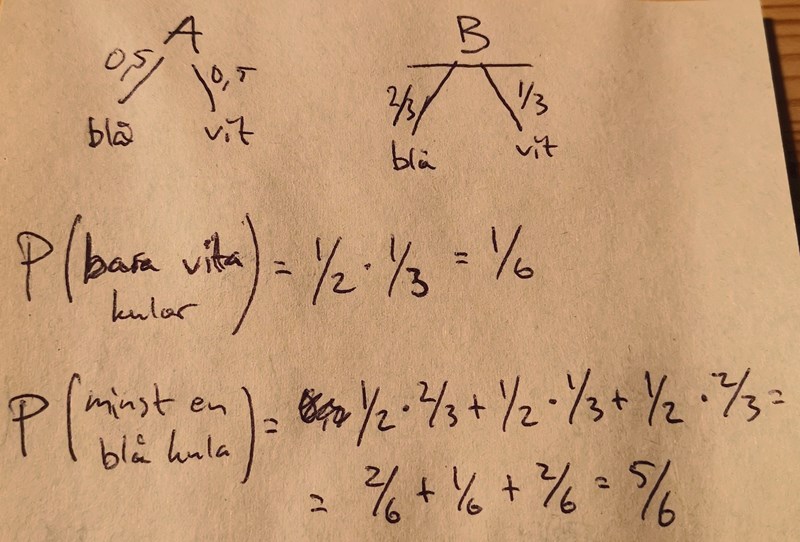 A B
0,5 0,5 2/3 1/3
blå vit blå vit
P(bara vita kulor) = 1/2 · 1/3 = 1/6
P(minst en blå kula) = 1/2 · 2/3 + 1/2 · 1/3 + 1/2 · 2/3 =
= 2/6 + 1/6 + 2/6 = 5/6